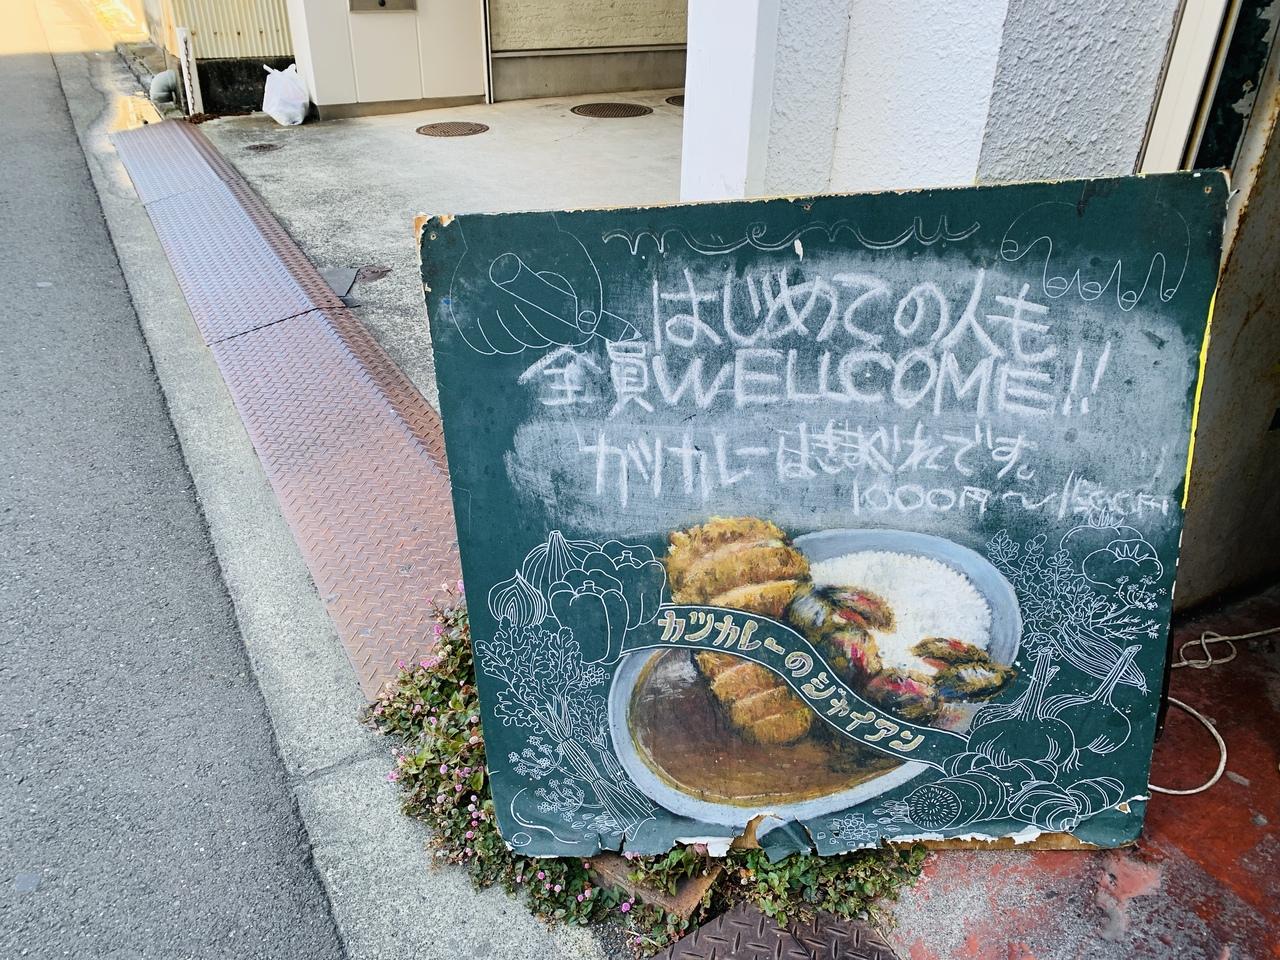 menu
はじめての人も
全員WELLCOME!!
カツカレーはきまぐれです。
1000円〜
カツカレーのジャイアン